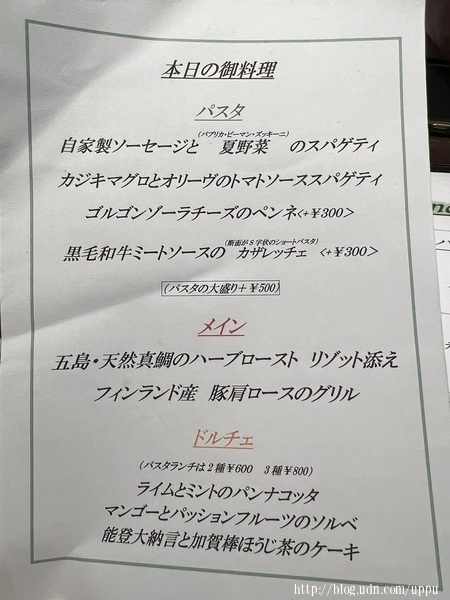 本日の御料理
パスタ
(パプリカ・ピーマン・ズッキーニ)
自家製ソーセージと 夏野菜 のスパゲティ
カジキマグロとオリーヴのトマトソーススパゲティ
ゴルゴンゾーラチーズのペンネ<+¥300>
(断面がS字状のショートパスタ)
黒毛和牛ミートソースの カザレッチェ <+¥300>
(パスタの大盛り+¥500)
メイン
五島・天然真鯛のハーブロースト リゾット添え
フィンランド産 豚肩ロースのグリル
ドルチェ
(パスタランチは2種¥600 3種¥800)
ライムとミントのパンナコッタ
マンゴーとパッションフルーツのソルベ
能登大納言と加賀棒ほうじ茶のケーキ
http://blog.udn.com/uppu